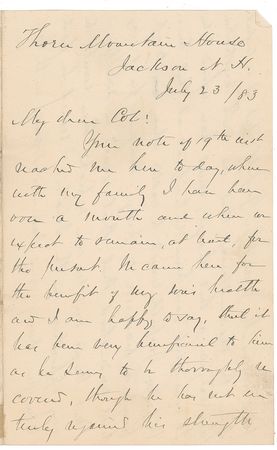 Thorn Mountain House
Jackson N. H.
July 23/83
My dear Col:
Your note of 19th inst
reached me here to day, where
with my family I have been
over a month and where we
expect to remain, at least, for
the present. We came here for
the benefit of my son's health
and I am happy to say, that it
has been very beneficial to him
as he seems to be thoroughly re
covered, though he has not en
tirely regained his strength